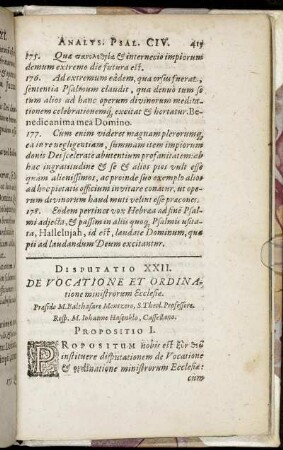 ANALYS. PSAL. CIV. 411
175. Quæ πανολεθρία & internecio impiorum
demum extremo die futura est.
176. Ad extremum eódem, qua orsus fuerat,
sententia Psalmum claudit, qua denuò tum se
tum alios ad hanc operum divinorum medita-
tionem celebrationemq, excitat & hortatur. Be-
nedic anima mea Domino.
177. Cum enim videret magnam plerorumq,
ea in re negligentiam, summam item impiorum
donis Dei scelerate abutentium profanitatem: ab
hac ingratitudine & se & alios piis vult esse
quam alienissimos, ac proinde suo exemplo alios
ad hoc pietatis officium invitare conatur, ut o-
perum divinorum haud muti velint esse præcones.
178. Eodem pertinet vox Hebræa ad finē Psal-
mi adjecta, & passim in aliis quoq, Psalmis usita-
ta, Hallelujah, id est, laudate Dominum, qua
pii ad laudandum Deum excitantur.
DISPUTATIO XXII.
DE VOCATIONE ET ORDINA-
tione ministrorum Ecclesiæ.
Præside M. Balthasare Mentzero, S. Theol. Professore.
Resp. M. Iohanne
PROPOSITIO I.
PROPOSITUM nobis est
instituere disputationem de Vocatione
& ordinatione ministrorum Ecclesiæ:
cùm